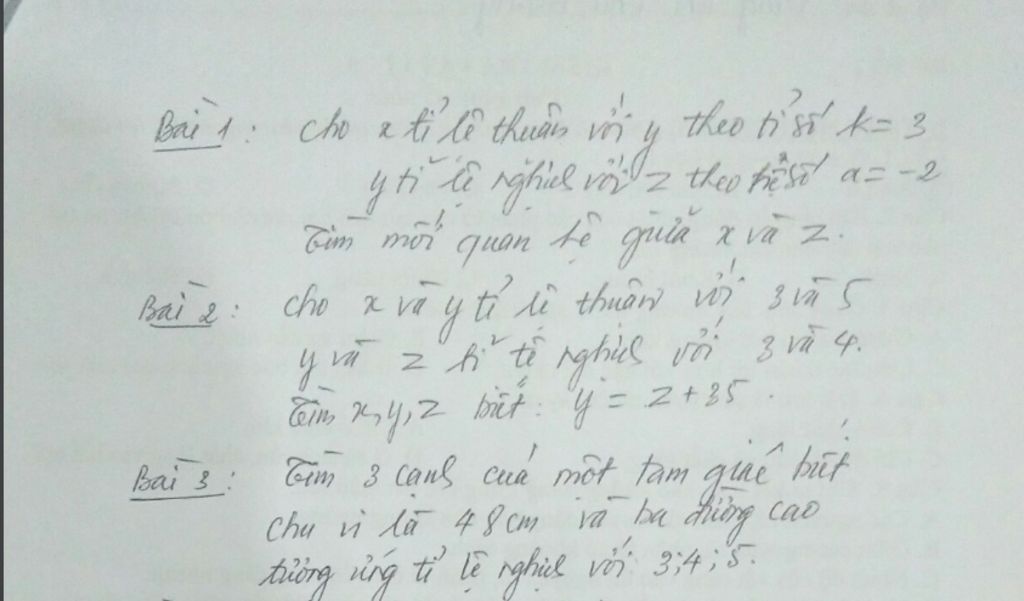 Bài 1: Cho x tỉ lệ thuận với y theo tỉ số k = 3
y tỉ lệ nghịch với z theo hệ số a = -2
Tìm mối quan hệ giữa x và z.
Bài 2: Cho x và y tỉ lệ thuận với 3 và 5
y và z tỉ lệ nghịch với 3 và 4.
Tìm x, y, z biết: y = z + 35.
Bài 3: Tìm 3 cạnh của một tam giác biết
chu vi là 48cm và ba đường cao
tương ứng tỉ lệ nghịch với 3; 4; 5.